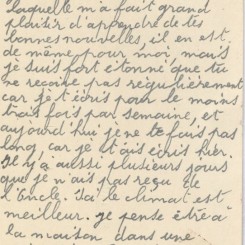 laquelle m'a fait grand
plaisir d'apprendre de tes
bonnes nouvelles, il en est
de même pour moi, mais
je suis fort étonné que tu
ne recoive pas régulièrement
car je t'écris pour le moins
trois fois par semaine, et
aujourd'hui je ne te fais pas
long, car je t'ais écris hier.
Il y a aussi plusieurs jours
que je n'ais pas reçu de
l'Oncle. Ici le climat est
meilleur. je pense être à
la maison dans une